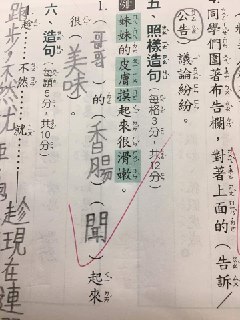 4.同學們圍著布告欄,對著上面的(告訴/
公告)議論紛紛。
五、照樣造句(每格3分,共12分)
妹妹的皮膚摸起來很滑嫩。
1.(哥哥)的(香腸)(聞)起來
很(美味)。
六、造句(每題5分,共10分)
…不然…就…
跑步,不然就
趁現在連